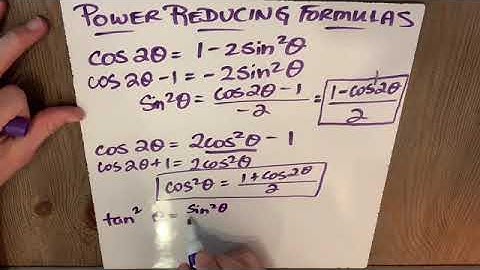 POWER REDUCING FORMULAS
cos 2θ = 1 - 2sin²θ
cos 2θ - 1 = - 2sin²θ
sin²θ = (cos 2θ - 1)/(-2) = (1 - cos 2θ)/2
cos 2θ = 2cos²θ - 1
cos 2θ + 1 = 2cos²θ
cos²θ = (1 + cos 2θ)/2
tan² θ = sin²θ